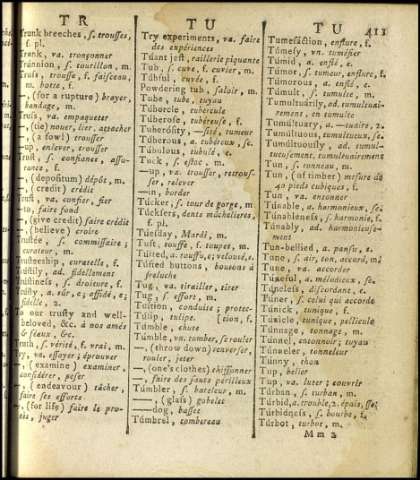 TR
TU
TU
411
Trunk breeches, s. trousses,
f. pl.
Trunk, va. tronçonner
Trúnnion, s. tourillon, m.
Truſs, trouſſe, f. faiſceau,
m. botte, f.
—, (for a rupture) brayer,
bandage, m.
Truſs, va. empaqueter
—, (tie) nouer, lier, attacher
—, (a fowl) trouſſer
—up, enlever, trouſſer
Truſt, s. confiance, aſſu-
rance, f.
—, (depoſitum) dépôt, m.
—, (credit) crédit
Truſt, va. confier, fier
—to, faire fond
—, (give credit) faire crédit
—, (believe) croire
Truſtée, s. commiſſaire;
curateur, m.
Truſteeſhip, curatelle, f.
Trúſtily, ad. fidellement
Trúſtineſs, s. droiture, f.
Trúſty, a. sûr, e; affidé, e;
fidelle, 2.
To our truſty and well-
beloved, &c. a nos amés
& féaux, &c.
Truth, s. vérité, f. vrai, m.
Try, va. eſſayer; éprouver
—, (examine) examiner,
conſidérer, peſer
—, (endeavour) tâcher,
faire ſes efforts
—, (for life) faire le pro-
cès, juger
Try experiments, va. faire
des expériences
Túant jeſt, raillerie piquante
Tub, s. cuve, f. cuvier, m.
Túbful, cuvée, f.
Powdering tub, ſaloir, m.
Tube, tube, tuyau
Túbercle, tubercule
Túberoſe, tubéreuſe, f.
Tuberóſity, —ſité, tumeur
Túberous, a. tubéreux, ſe.
Túbulous, tubulé, e.
Tuck, s. eſtoc, m.
—up, va. trouſſer, retrouſ-
ſer, relever
—in, border
Túcker, s. tour de gorge, m.
Túckſers, dents mâchelieres,
f. pl.
Túeſday, Mardi, m.
Tuft, touffe, f. toupet, m.
Túfted, a. touffu, e; velouté, e.
Túfted buttons, boutons à
freluche
Tug, va. tirailler, tirer
Tug, s. effort, m.
Tuition, conduite; protec-
Túlip, tulipe. [tion, f.
Túmble, chute
Túmble, vn. tomber, ſe rouler
—, (throw down) renverſer,
rouler, jeter
—, (one's clothes) chiffonner
—, faire des ſauts périlleux
Túmbler, s. bateleur, m.
—, (glaſs) gobelet
—dog, baſſet
Túmbrel, tombereau
Tumefáction, enflure, f.
Túmefy, vn. tuméfier
Túmid, a. enflé, e.
Túmor, s. tumeur, enflure, f.
Túmorous, a. enflé, e.
Túmult, s. tumulte, m.
Tumúltuarily, ad. tumultuai-
rement, en tumulte
Tumúltuary, a. —tuaire, 2.
Tumúltuous, tumultueux, ſe.
Tumúltuouſly, ad. tumul-
tueuſement, tumultuairement
Tun, s. tonneau, m.
Tun, (of timber) meſure de
40 pieds cubiques, f.
Tun, va. entonner
Túnable, a. harmonieux, ſe.
Túnableneſs, s. harmonie, f.
Túnably, ad. harmonieuſe-
ment
Tun-bellied, a. panſu, e.
Tune, s. air, ton, accord, m.
Tune, va. accorder
Túneful, a. mélodieux, ſe.
Túneleſs, diſcordant, e.
Túner, s. celui qui accorde
Túnick, tunique, f.
Túnicle, tunique, pellicule
Túnnage, tonnage, m.
Túnnel, entonnoir; tuyau
Túnneler, tonneleur
Tunny, thon
Tup, belier
Tup, va. luter; couvrir
Túrban, s. turban, m.
Túrbid, a. trouble, 2. épais, ſſe.
Túrbidneſs, s. bourbe, f.
Túrbot, turbot, m.
M m 2